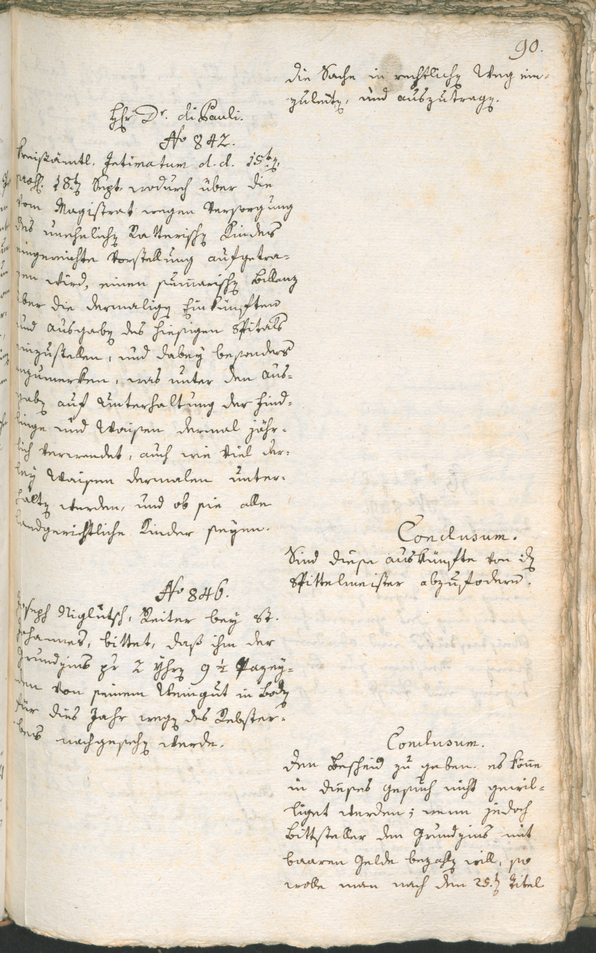 90.
die Sache in rechtlichen Weg ein-
zuleiten, und auszutragen.
Hr Dr. di Pauli.
No 842.
Kreisämtl. Intimatum d. d. 15ten
praes. 18ten Sept. wodurch über die
vom Magistrat wegen Versorgung
des unehelichen Katterischen Kindes
eingereichte Vorstellung aufgetra-
gen wird, einen summarischen Billenz
über die dermaligen Einkünften
und Ausgaben des hiesigen Spitals
einzustellen, und dabey besonders
anzumerken, was unter den Aus-
gaben auf Unterhaltung der Find-
linge und Waisen dermal jähr-
lich verwendet, auch wie viel der-
ley Waisen dermalen unter-
halten werden, und ob sie alle
Landgerichtliche Kinder seyen.
Conclusum.
Sind diese Auskünfte von dem
Spittelmeister abzufodern.
No 846.
Joseph Niglutsch, Reiter bey St.
Johannes, bittet, daß ihm der
Grundzins pr 2 Yhren 9 1/2 Pazey-
den von seinem Weingut in Boden
für dies Jahr wegen des Rebster-
bens nachgesehen werde.
Conclusum.
Den Bescheid zu geben: es könne
in dieses Gesuch nicht gewil-
liget werden; wenn jedoch
Bittsteller den Grundzins mit
baaren Gelde bezahlen will, so
wolle man nach dem 25ten Titel